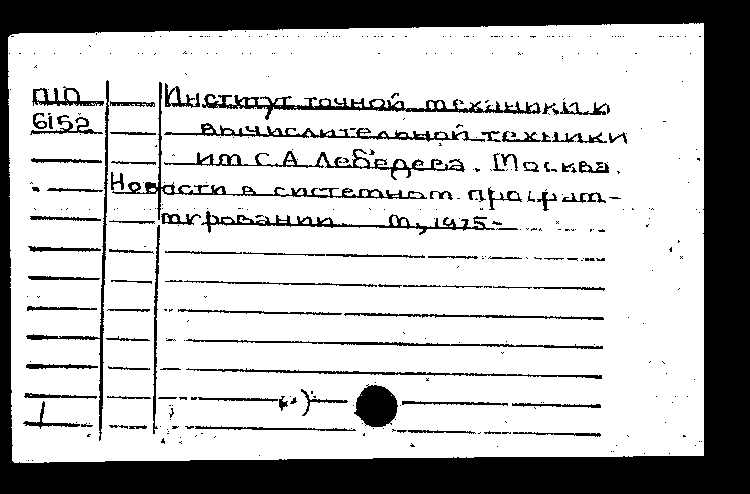 П10 Институт точной механики и
6152 вычислительной техники
им С.А Лебедева. Москва.
Новости в системном програм-
мировании. М., 1975-